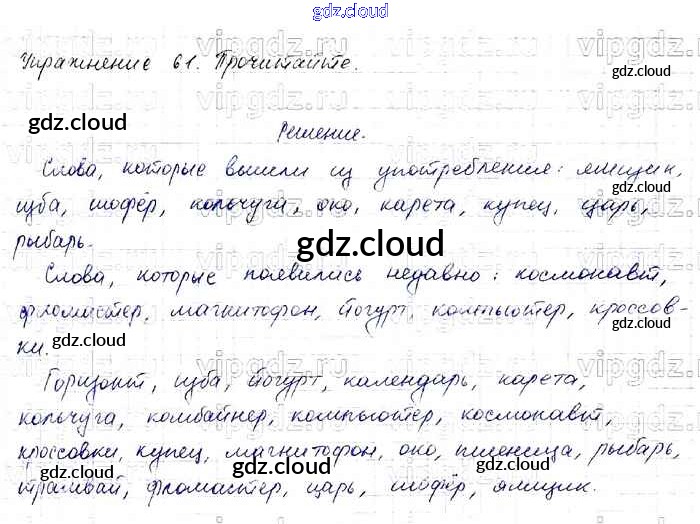 gdz.cloud
Упражнение 61. Прочитайте.
gdz.cloud
gdz.cloud
Решение.
Слова, которые вышли из употребления: ямщик,
gdz.cloud
изба, шофёр, кольчуга, око, карета, купец, царь,
рыбарь.
gdz.cloud
Слова, которые появились недавно: космонавт,
фломастер, магнитофон, йогурт, компьютер, кроссов-
gdz.cloud
ки.
Горизонт, изба, йогурт, календарь, карета,
кольчуга, комбайнер, компьютер, космонавт,
кроссовки, купец, магнитофон, око, пшеница, рыбарь,
gdz.cloud gdz.cloud gdz.cloud
трамвай, фломастер, царь, шофёр, ямщик.